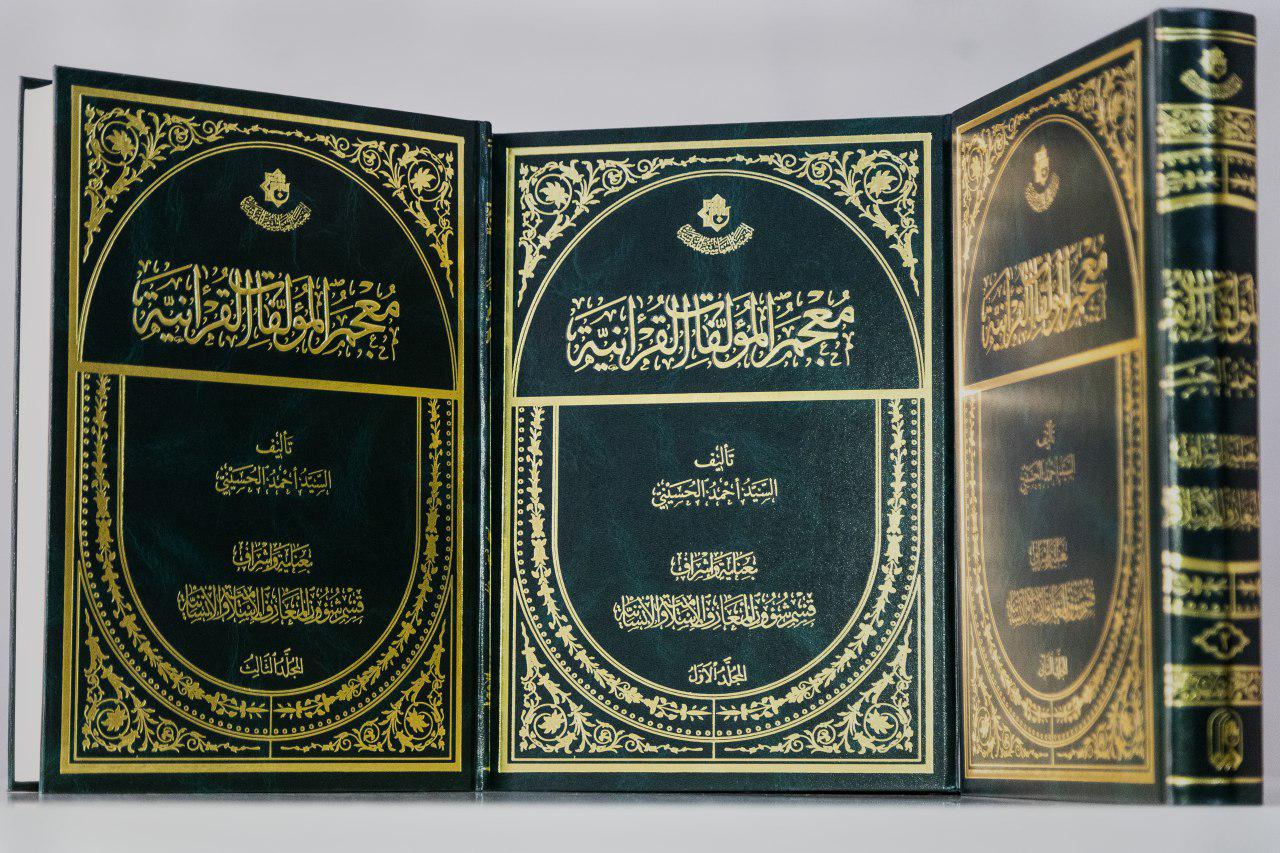 معجم المؤلفات القرآنية
تأليف
السيد أحمد الحسيني
بعناية وإشراف
قسم شؤون المعارف الإسلامية والإنسانية
المجلد الأول
معجم المؤلفات القرآنية
تأليف
السيد أحمد الحسيني
بعناية وإشراف
قسم شؤون المعارف الإسلامية والإنسانية
المجلد الثالث
معجم المؤلفات القرآنية
تأليف
السيد أحمد الحسيني
بعناية وإشراف
قسم شؤون المعارف الإسلامية والإنسانية
المجلد الثاني
٢